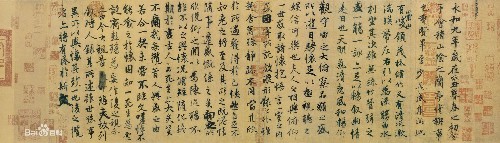 永和九年歲在癸丑暮春之初會
于會稽山陰之蘭亭脩稧事
也羣賢畢至少長咸集此地
有崇山峻領茂林脩竹又有清流激
湍暎帶左右引以為流觴曲水
列坐其次雖無絲竹管弦之
盛一觴一詠亦足以暢敘幽情
是日也天朗氣清惠風和暢仰
觀宇宙之大俯察品類之盛
所以遊目騁懷足以極視聽之
娛信可樂也夫人之相與俯仰
一世或取諸懷抱悟言一室之內
或因寄所託放浪形骸之外雖
趣舍萬殊靜躁不同當其欣
於所遇蹔得於己怏然自足不
知老之將至及其所之既惓情
隨事遷感慨係之矣向之所
欣俛仰之間以為陳迹猶不
能不以之興懷況脩短隨化終
期於盡古人云死生亦大矣豈
不痛哉每攬昔人興感之由
若合一契未嘗不臨文嗟悼不
能喻之於懷固知一死生為虛
誕齊彭殤為妄作後之視今
亦由今之視昔悲夫故列
敘時人錄其所述雖世殊事
異所以興懷其致一也後之攬
者亦將有感於斯文
Bai百科